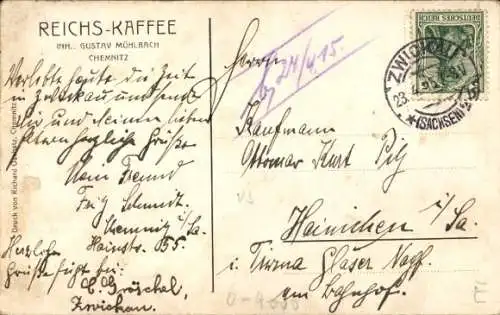 REICHS-KAFFEE
INH. GUSTAV MÜHLBACH
CHEMNITZ
Verlebte heute die Zeit
in Zwickau und sende
dir und deinen lieben
Eltern herzliche Grüße
Vom Freund
Fritz Schmidt.
Chemnitz i/Sa.
Hainstr. 55.
Herzliche
Grüße fügt bei:
E. Gröschel,
Zwickau.
Druck von Richard Chemnitz
24/4.15.
DEUTSCHES REICH
ZWICKAU
(SACHSEN)
23
Herrn
Kaufmann
Ottomar Kurt Pilz
Hainichen i/Sa.
i. Firma Gläser Nachf.
am Bahnhof.